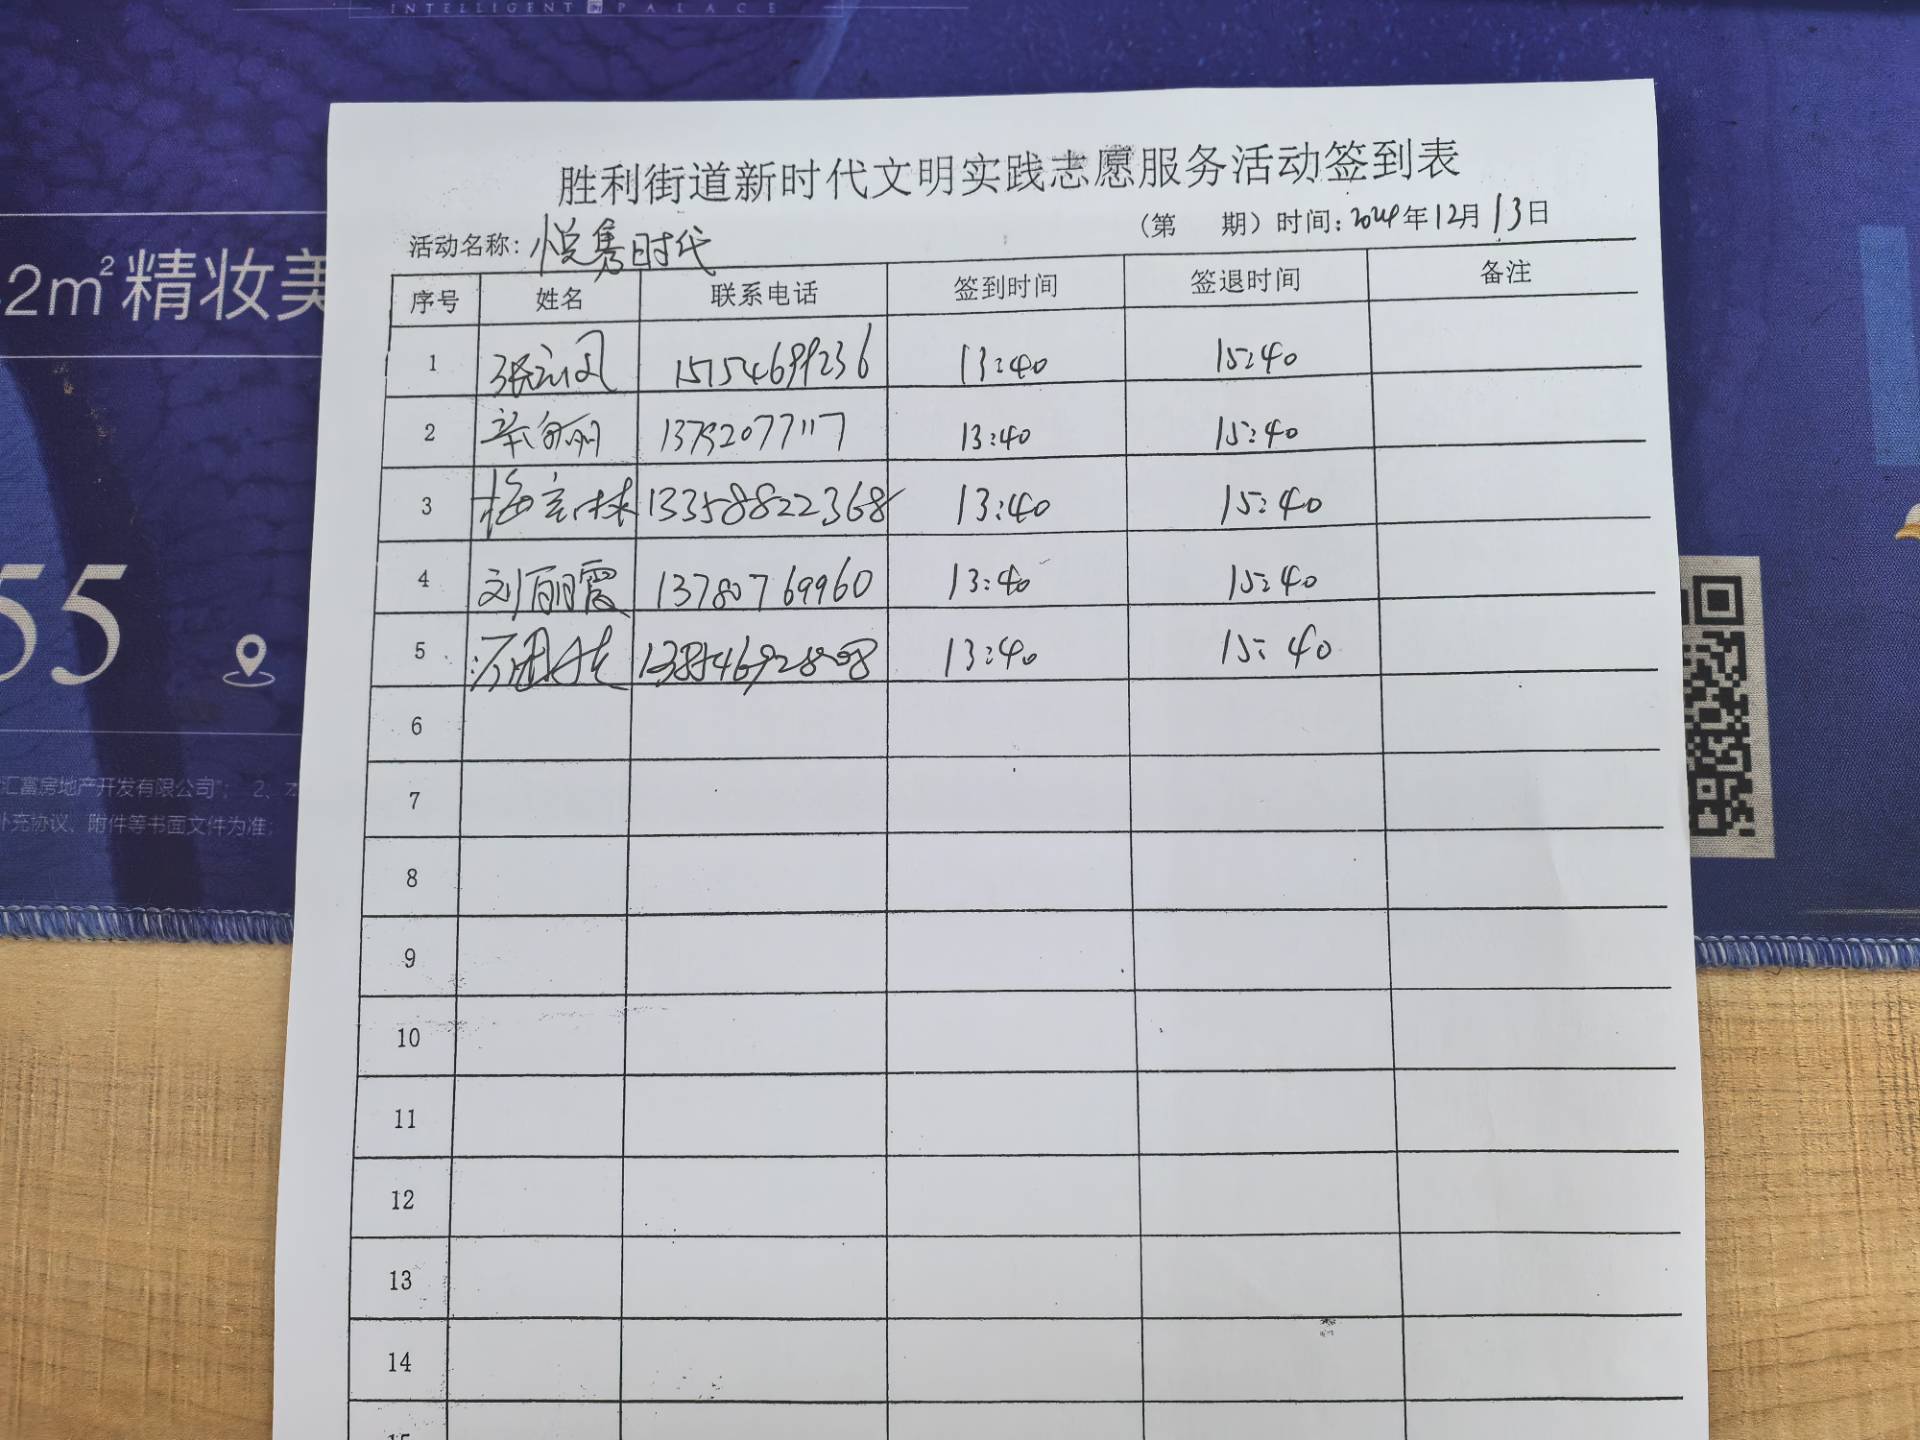 INTELLIGENT PALACE
胜利街道新时代文明实践志愿服务活动签到表
活动名称：悦隽时代 （第 期）时间：2024年12月13日
序号 姓名 联系电话 签到时间 签退时间 备注
1 15154699236 13:40 15:40
2 13792077117 13:40 15:40
3 13358822368 13:40 15:40
4 刘丽霞 13780769960 13:40 15:40
5 13:40 15:40
6
7
8
9
10
11
12
13
14
15
2m²精妆美
55
汇富房地产开发有限公司"； 2、本
补充协议、附件等书面文件为准；